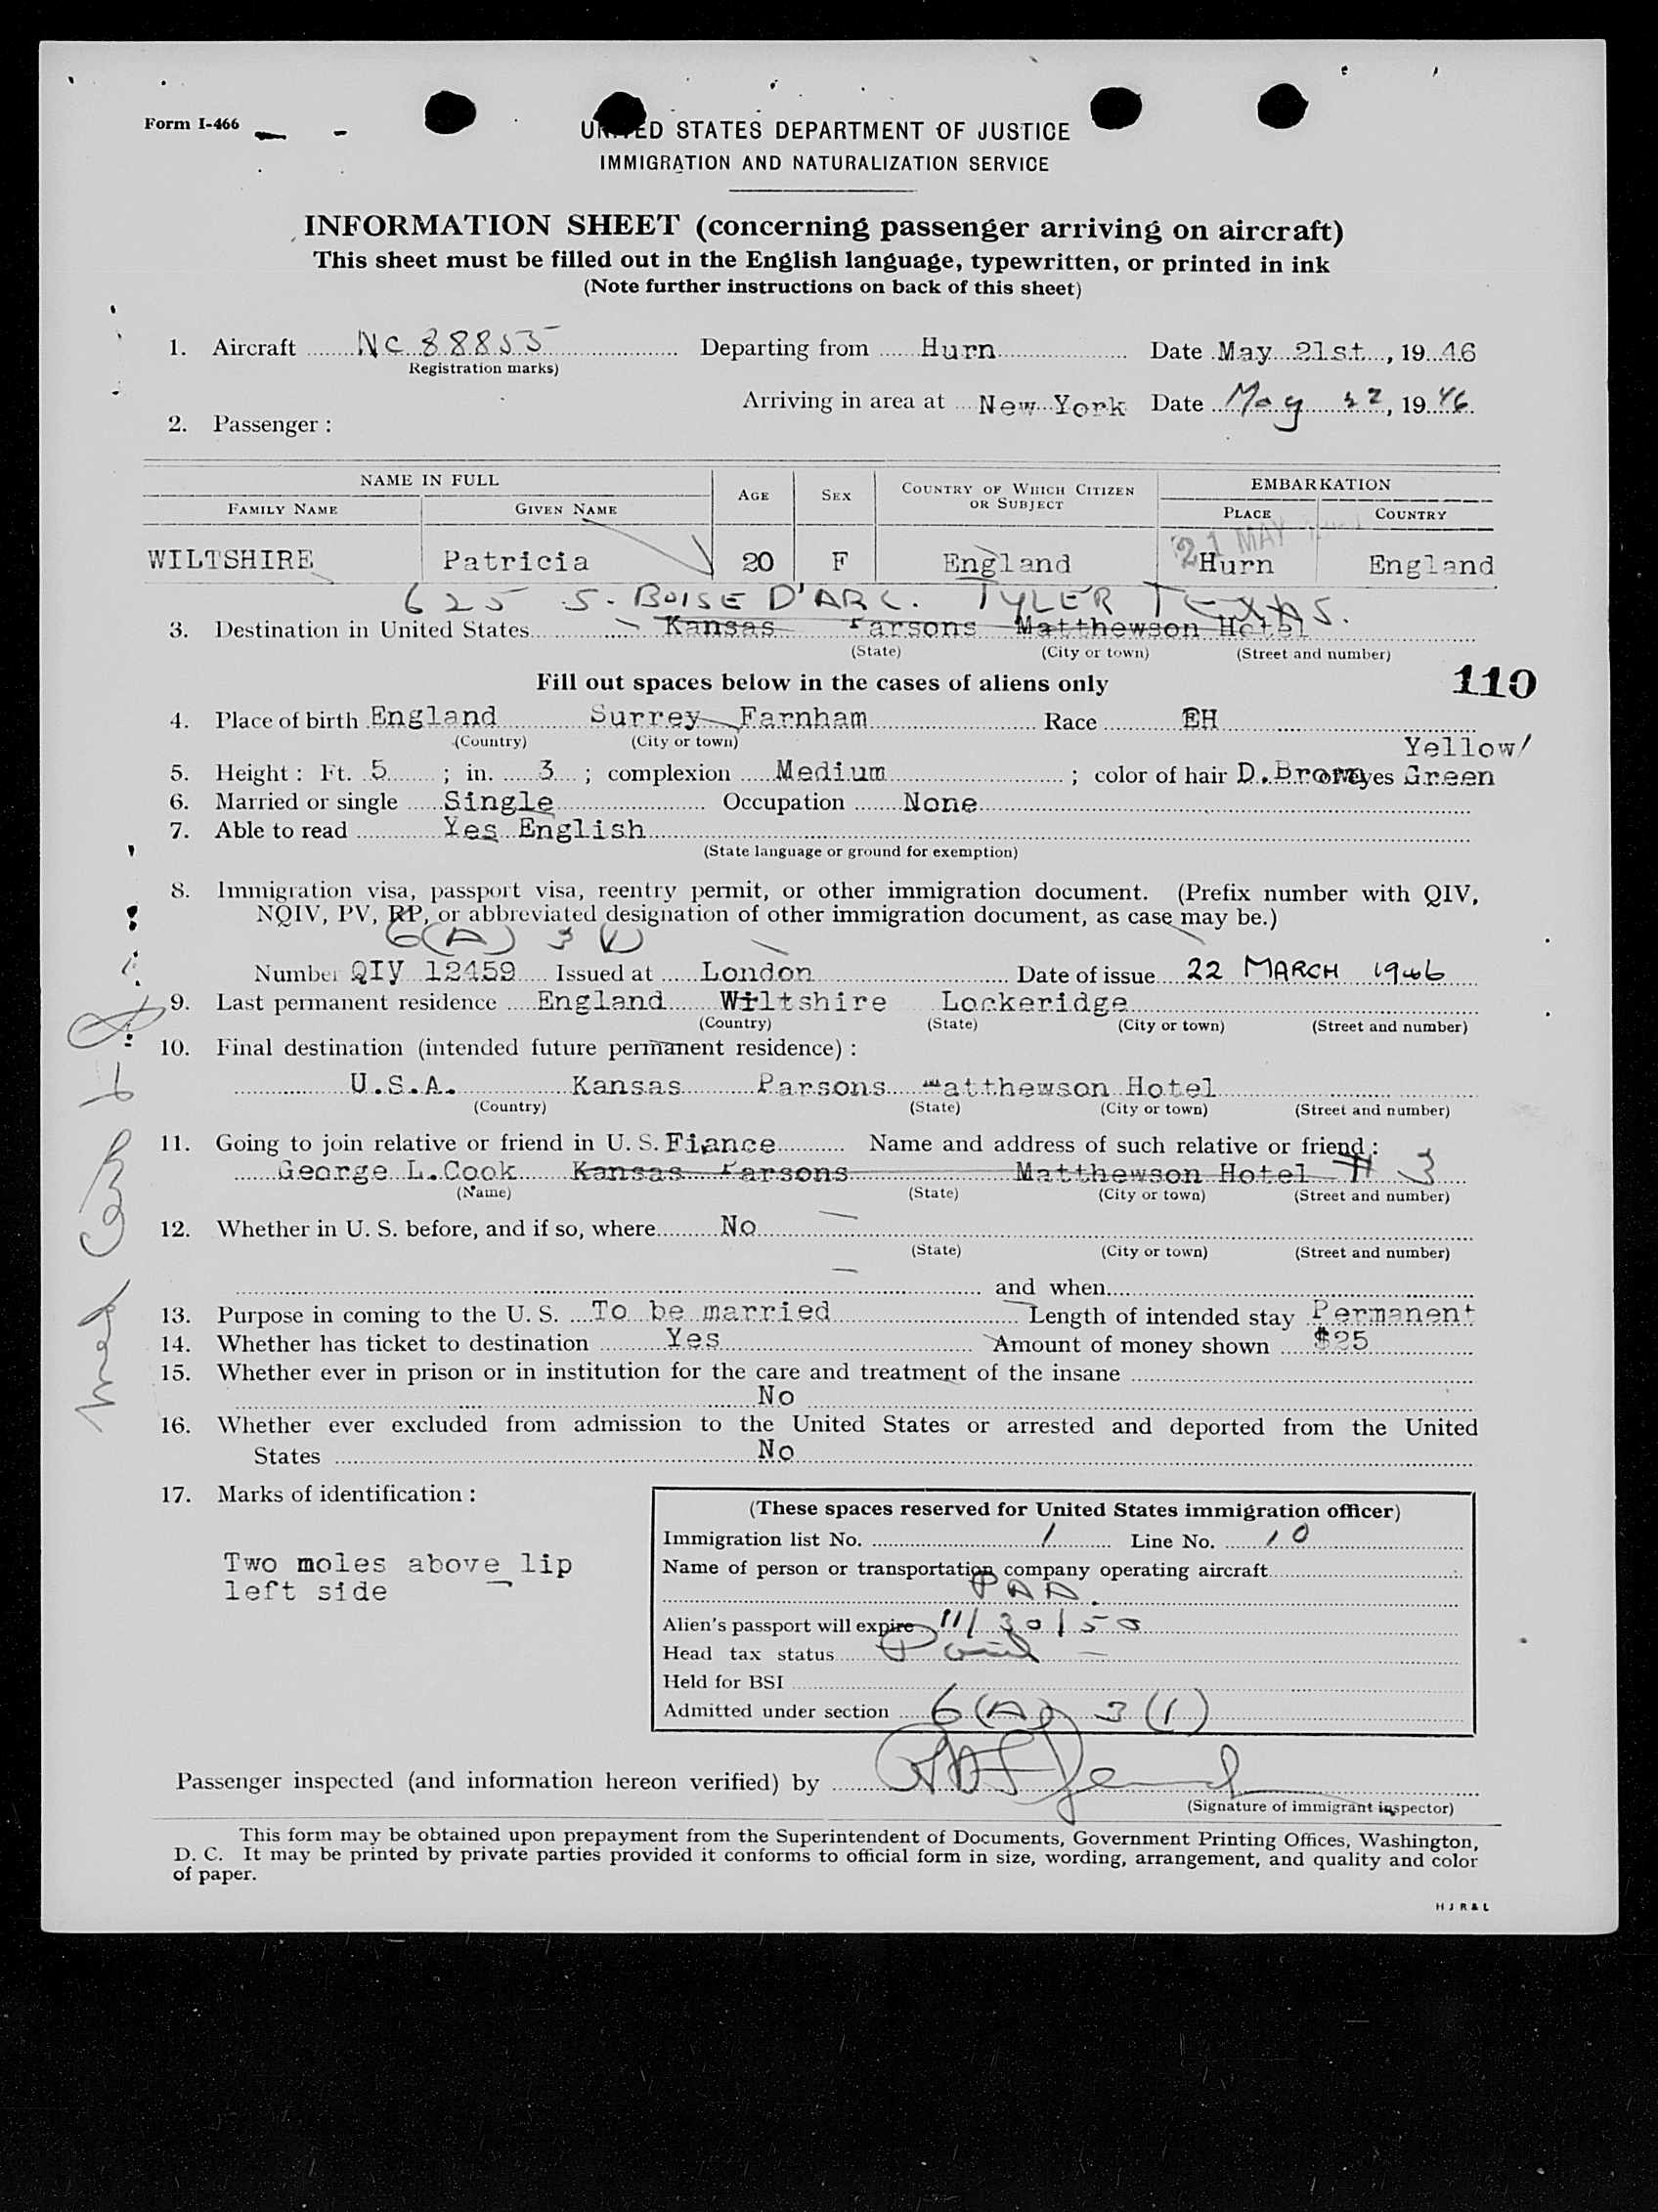 Form I-466
UNITED STATES DEPARTMENT OF JUSTICE
IMMIGRATION AND NATURALIZATION SERVICE
INFORMATION SHEET (concerning passenger arriving on aircraft)
This sheet must be filled out in the English language, typewritten, or printed in ink
(Note further instructions on back of this sheet)
1. Aircraft NC 88855 Departing from Hurn Date May 21st, 1946
Registration marks)
Arriving in area at New York Date May 22, 1946
2. Passenger :
NAME IN FULL AGE SEX COUNTRY OF WHICH CITIZEN OR SUBJECT EMBARKATION
FAMILY NAME GIVEN NAME PLACE COUNTRY
21 MAY
WILTSHIRE Patricia 20 F England Hurn England
625 S. BOISE D'ARC. TYLER TEXAS.
3. Destination in United States Kansas Parsons Matthewson Hotel
(State) (City or town) (Street and number)
Fill out spaces below in the cases of aliens only 110
4. Place of birth England Surrey Farnham Race EH
(Country) (City or town) Yellow/
5. Height : Ft. 5 ; in. 3 ; complexion Medium ; color of hair D.Brown eyes Green
6. Married or single Single Occupation None
7. Able to read Yes English
(State language or ground for exemption)
8. Immigration visa, passport visa, reentry permit, or other immigration document. (Prefix number with QIV,
NQIV, PV, RP, or abbreviated designation of other immigration document, as case may be.)
6(A) 3 (1)
Number QIV 12459 Issued at London Date of issue 22 MARCH 1946
9. Last permanent residence England Wiltshire Lockeridge
(Country) (State) (City or town) (Street and number)
10. Final destination (intended future permanent residence) :
U.S.A. Kansas Parsons Matthewson Hotel
(Country) (State) (City or town) (Street and number)
11. Going to join relative or friend in U. S. Fiance Name and address of such relative or friend :
George L.Cook Kansas Parsons Matthewson Hotel # 3
(Name) (State) (City or town) (Street and number)
12. Whether in U. S. before, and if so, where No
(State) (City or town) (Street and number)
and when
13. Purpose in coming to the U. S. To be married Length of intended stay Permanent
14. Whether has ticket to destination Yes Amount of money shown $25
15. Whether ever in prison or in institution for the care and treatment of the insane
No
16. Whether ever excluded from admission to the United States or arrested and deported from the United
States No
17. Marks of identification :
Two moles above lip
left side
(These spaces reserved for United States immigration officer)
Immigration list No. 1 Line No. 10
Name of person or transportation company operating aircraft
PAA.
Alien's passport will expire 11/30/50
Head tax status Paid
Held for BSI
Admitted under section 6(A) 3(1)
Passenger inspected (and information hereon verified) by
(Signature of immigrant inspector)
This form may be obtained upon prepayment from the Superintendent of Documents, Government Printing Offices, Washington,
D. C. It may be printed by private parties provided it conforms to official form in size, wording, arrangement, and quality and color
of paper.
H J R & L